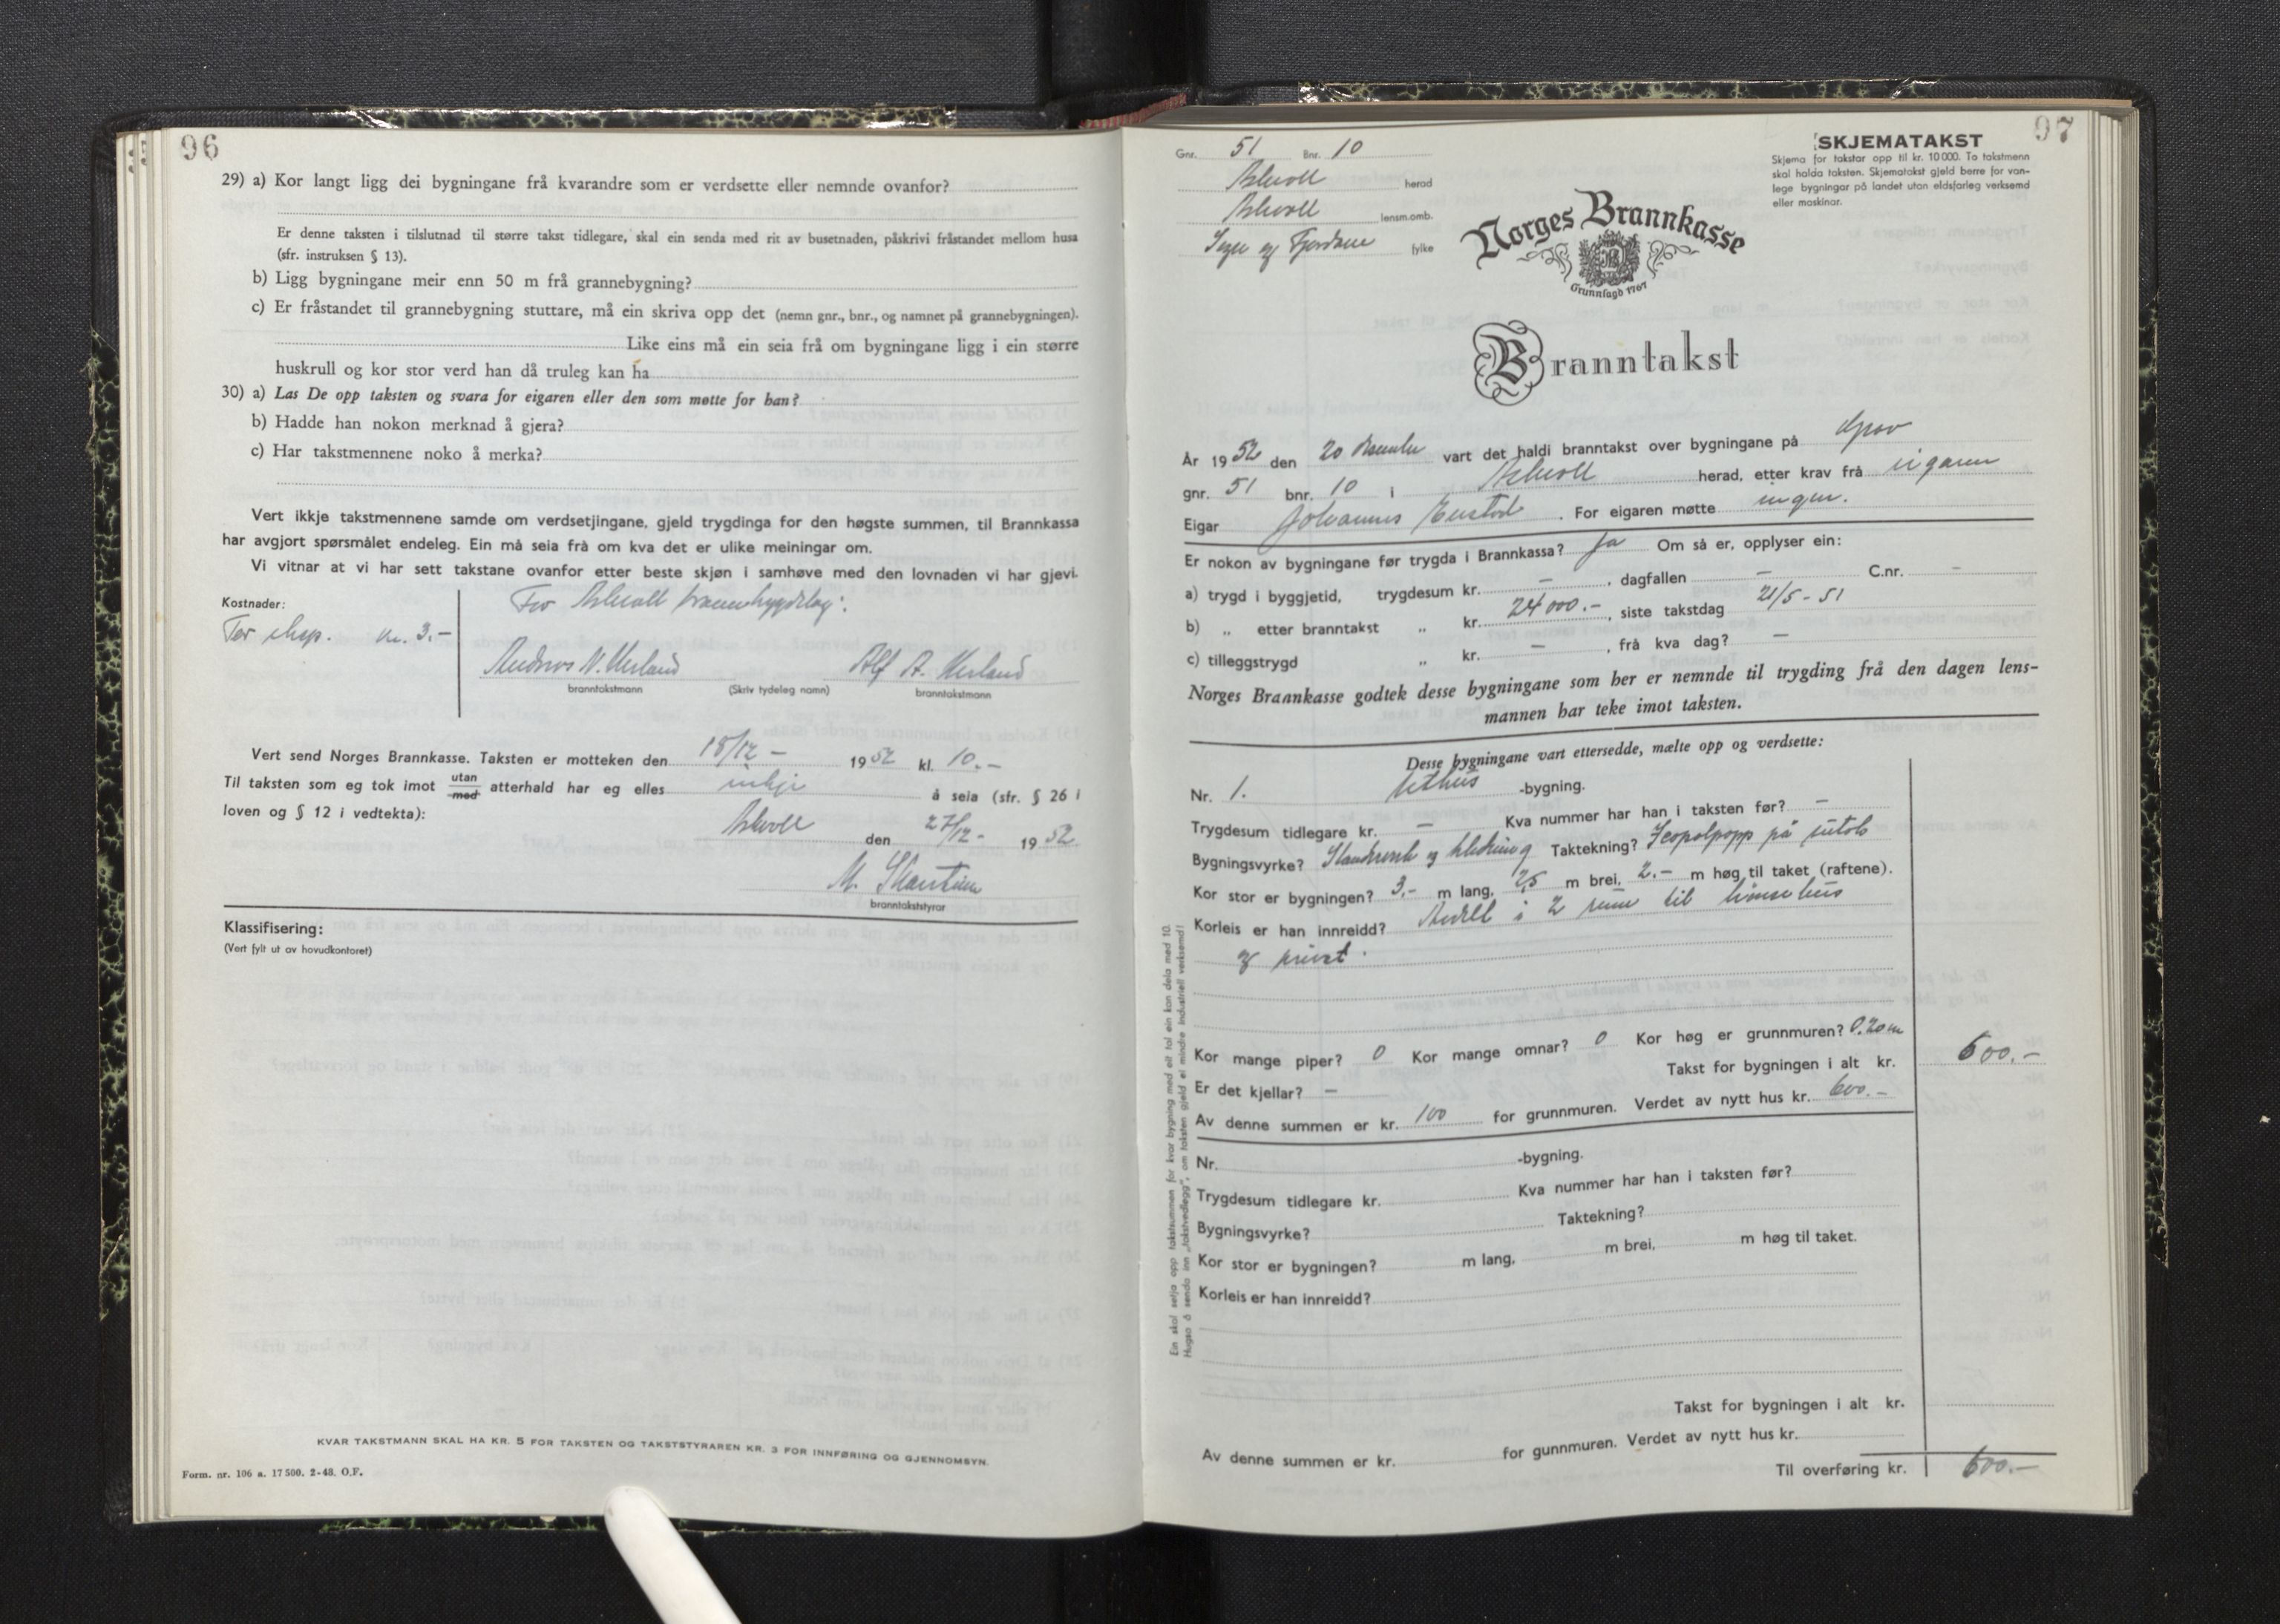 96
29) a) Kor langt ligg dei bygningane frå kvarandre som er verdsette eller nemnde ovanfor?
Er denne taksten i tilslutnad til større takst tidlegare, skal ein senda med rit av busetnaden, påskrivi fråstandet mellom husa
(sfr. instruksen § 13).
b) Ligg bygningane meir enn 50 m frå grannebygning?
c) Er fråstandet til grannebygning stuttare, må ein skriva opp det (nemn gnr., bnr., og namnet på grannebygningen).
Like eins må ein seia frå om bygningane ligg i ein større
huskrull og kor stor verd han då truleg kan ha
30) a) Las De opp taksten og svara for eigaren eller den som møtte for han?
b) Hadde han nokon merknad å gjera?
c) Har takstmennene noko å merka?
Vert ikkje takstmennene samde om verdsetjingane, gjeld trygdinga for den høgste summen, til Brannkassa
har avgjort spørsmålet endeleg. Ein må seia frå om kva det er ulike meiningar om.
Vi vitnar at vi har sett takstane ovanfor etter beste skjøn i samhøve med den lovnaden vi har gjevi.
Kostnader:
For Askvoll
kr. 3.-
Alf A.
branntakstmann (Skriv tydeleg namn) branntakstmann
Vert send Norges Brannkasse. Taksten er motteken den 18/12 - 1952 kl. 10.-
Til taksten som eg tok imot utan med atterhald har eg elles inkje å seia (sfr. § 26 i
loven og § 12 i vedtekta):
Askvoll den 27/12- 1952
M.
branntakststyrar
Klassifisering:
(Vert fylt ut av hovudkontoret)
KVAR TAKSTMANN SKAL HA KR. 5 FOR TAKSTEN OG TAKSTSTYRAREN KR. 3 FOR INNFØRING OG GJENNOMSYN.
Form. nr. 106 a. 17 500. 2-48. O.F.
97
Gnr. 51 Bnr. 10
Askvoll herad
Askvoll lensm.omb.
Sogn og Fjordane fylke
SKJEMATAKST
Skjema for takstar opp til kr. 10 000. To takstmenn
skal halda taksten. Skjematakst gjeld berre for van-
lege bygningar på landet utan eldsfarleg verksemd
eller maskinar.
Norges Brannkasse
Grunnlagd 1767
Branntakst
År 1952 den 20 desember vart det haldi branntakst over bygningane på
gnr. 51 bnr. 10 i Askvoll herad, etter krav frå eigaren
Eigar Johannes . For eigaren møtte ingen.
Er nokon av bygningane før trygda i Brannkassa? Ja Om så er, opplyser ein:
a) trygd i byggjetid, trygdesum kr. — , dagfallen — C.nr. -
b) „ etter branntakst „ kr. 24000.- , siste takstdag 21/5 - 51
c) tilleggstrygd „ kr. — , frå kva dag? —
Norges Brannkasse godtek desse bygningane som her er nemnde til trygding frå den dagen lens-
mannen har teke imot taksten.
Desse bygningane vart ettersedde, mælte opp og verdsette:
Nr. 1. Uthus -bygning.
Trygdesum tidlegare kr. — Kva nummer har han i taksten før? —
Bygningsvyrke? og kledning Taktekning? på sutak
Kor stor er bygningen? 3,- m lang, 2,5 m brei, 2.- m høg til taket (raftene).
Korleis er han innreidd? i 2 rum til hønsehus
og privet.
Kor mange piper? 0 Kor mange omnar? 0 Kor høg er grunnmuren? 0,20 m
Er det kjellar? — Takst for bygningen i alt kr. 600.-
Av denne summen er kr. 100 for grunnmuren. Verdet av nytt hus kr. 600.-
Nr. -bygning.
Trygdesum tidlegare kr. Kva nummer har han i taksten før?
Bygningsvyrke? Taktekning?
Kor stor er bygningen? m lang, m brei, m høg til taket.
Korleis er han innreidd?
Takst for bygningen i alt kr.
Av denne summen er kr. for gunnmuren. Verdet av nytt hus kr.
Til overføring kr. 600.-
Ein skal setja opp takstsummen for kvar bygning med eit tal ein kan dela med 10.
Hugso å senda inn „takstvedlegg", om taksten gjeld ei mindre industriell verksemd!